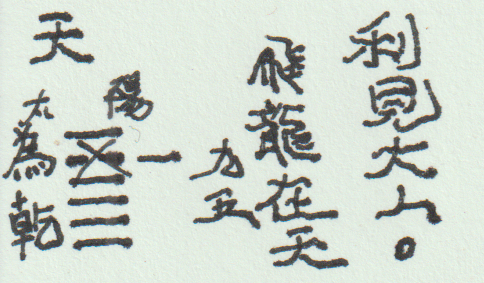 天
為乾
陽
一
九五
飛龍在天
利見大人。